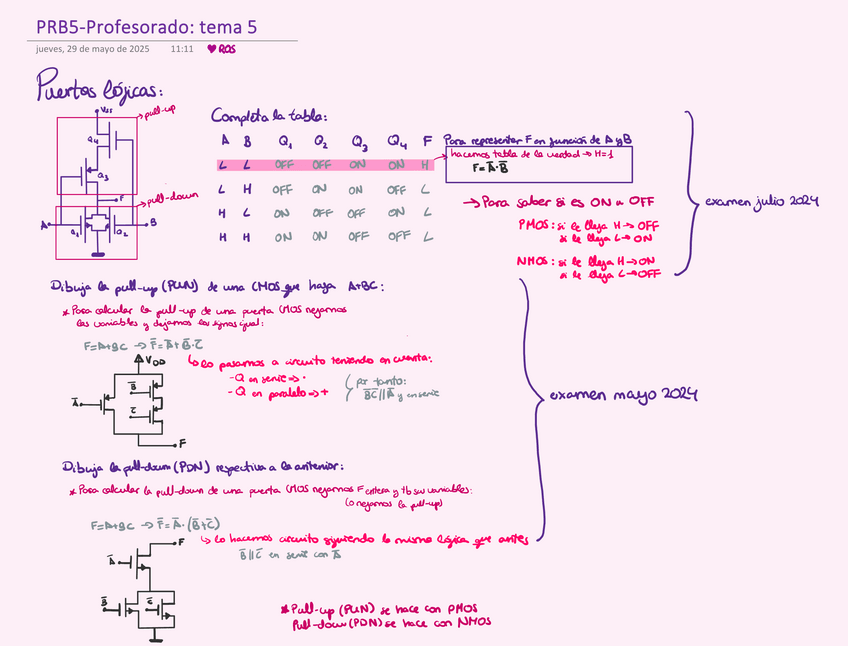 PRB5-Profesorado: tema 5
jueves, 29 de mayo de 2025 11:11 ♥ ROS
Puertas lógicas:
Vss
pull-up
Q4
Q3
F
pull-down
A
B
Q1
Q2
Completa la tabla:
A B Q1 Q2 Q3 Q4 F
L L OFF OFF ON ON H
L H OFF ON ON OFF L
H L ON OFF OFF ON L
H H ON ON OFF OFF L
Para representar F en función de A y B
hacemos tabla de la verdad → H=1
F = A̅·B̅
→ Para saber si es ON u OFF
PMOS: si le llega H → OFF
si le llega L → ON
NMOS: si le llega H → ON
si le llega L → OFF
examen julio 2024
Dibuja la pull-up (PUN) de una CMOS que haga A+BC:
* Para calcular la pull-up de una puerta CMOS negamos
las variables y dejamos los signos igual:
F=A+BC → F̅=A̅+B̅·C̅
VDD
↳ Lo pasamos a circuito teniendo en cuenta:
- Q en serie => ·
- Q en paralelo => +
por tanto:
B̅C̅//A̅ y en serie
A̅
B̅
C̅
F
examen mayo 2024
Dibuja la pull-down (PDN) respectiva a la anterior:
* Para calcular la pull-down de una puerta CMOS negamos F entera y tb sus variables:
(o negamos la pull-up)
F=A+BC → F̅=A̅·(B̅+C̅)
F
↳ Lo hacemos circuito siguiendo la misma lógica que antes
B̅//C̅ en serie con A̅
A̅
B̅
C̅
* Pull-up (PUN) se hace con PMOS
Pull-down (PDN) se hace con NMOS